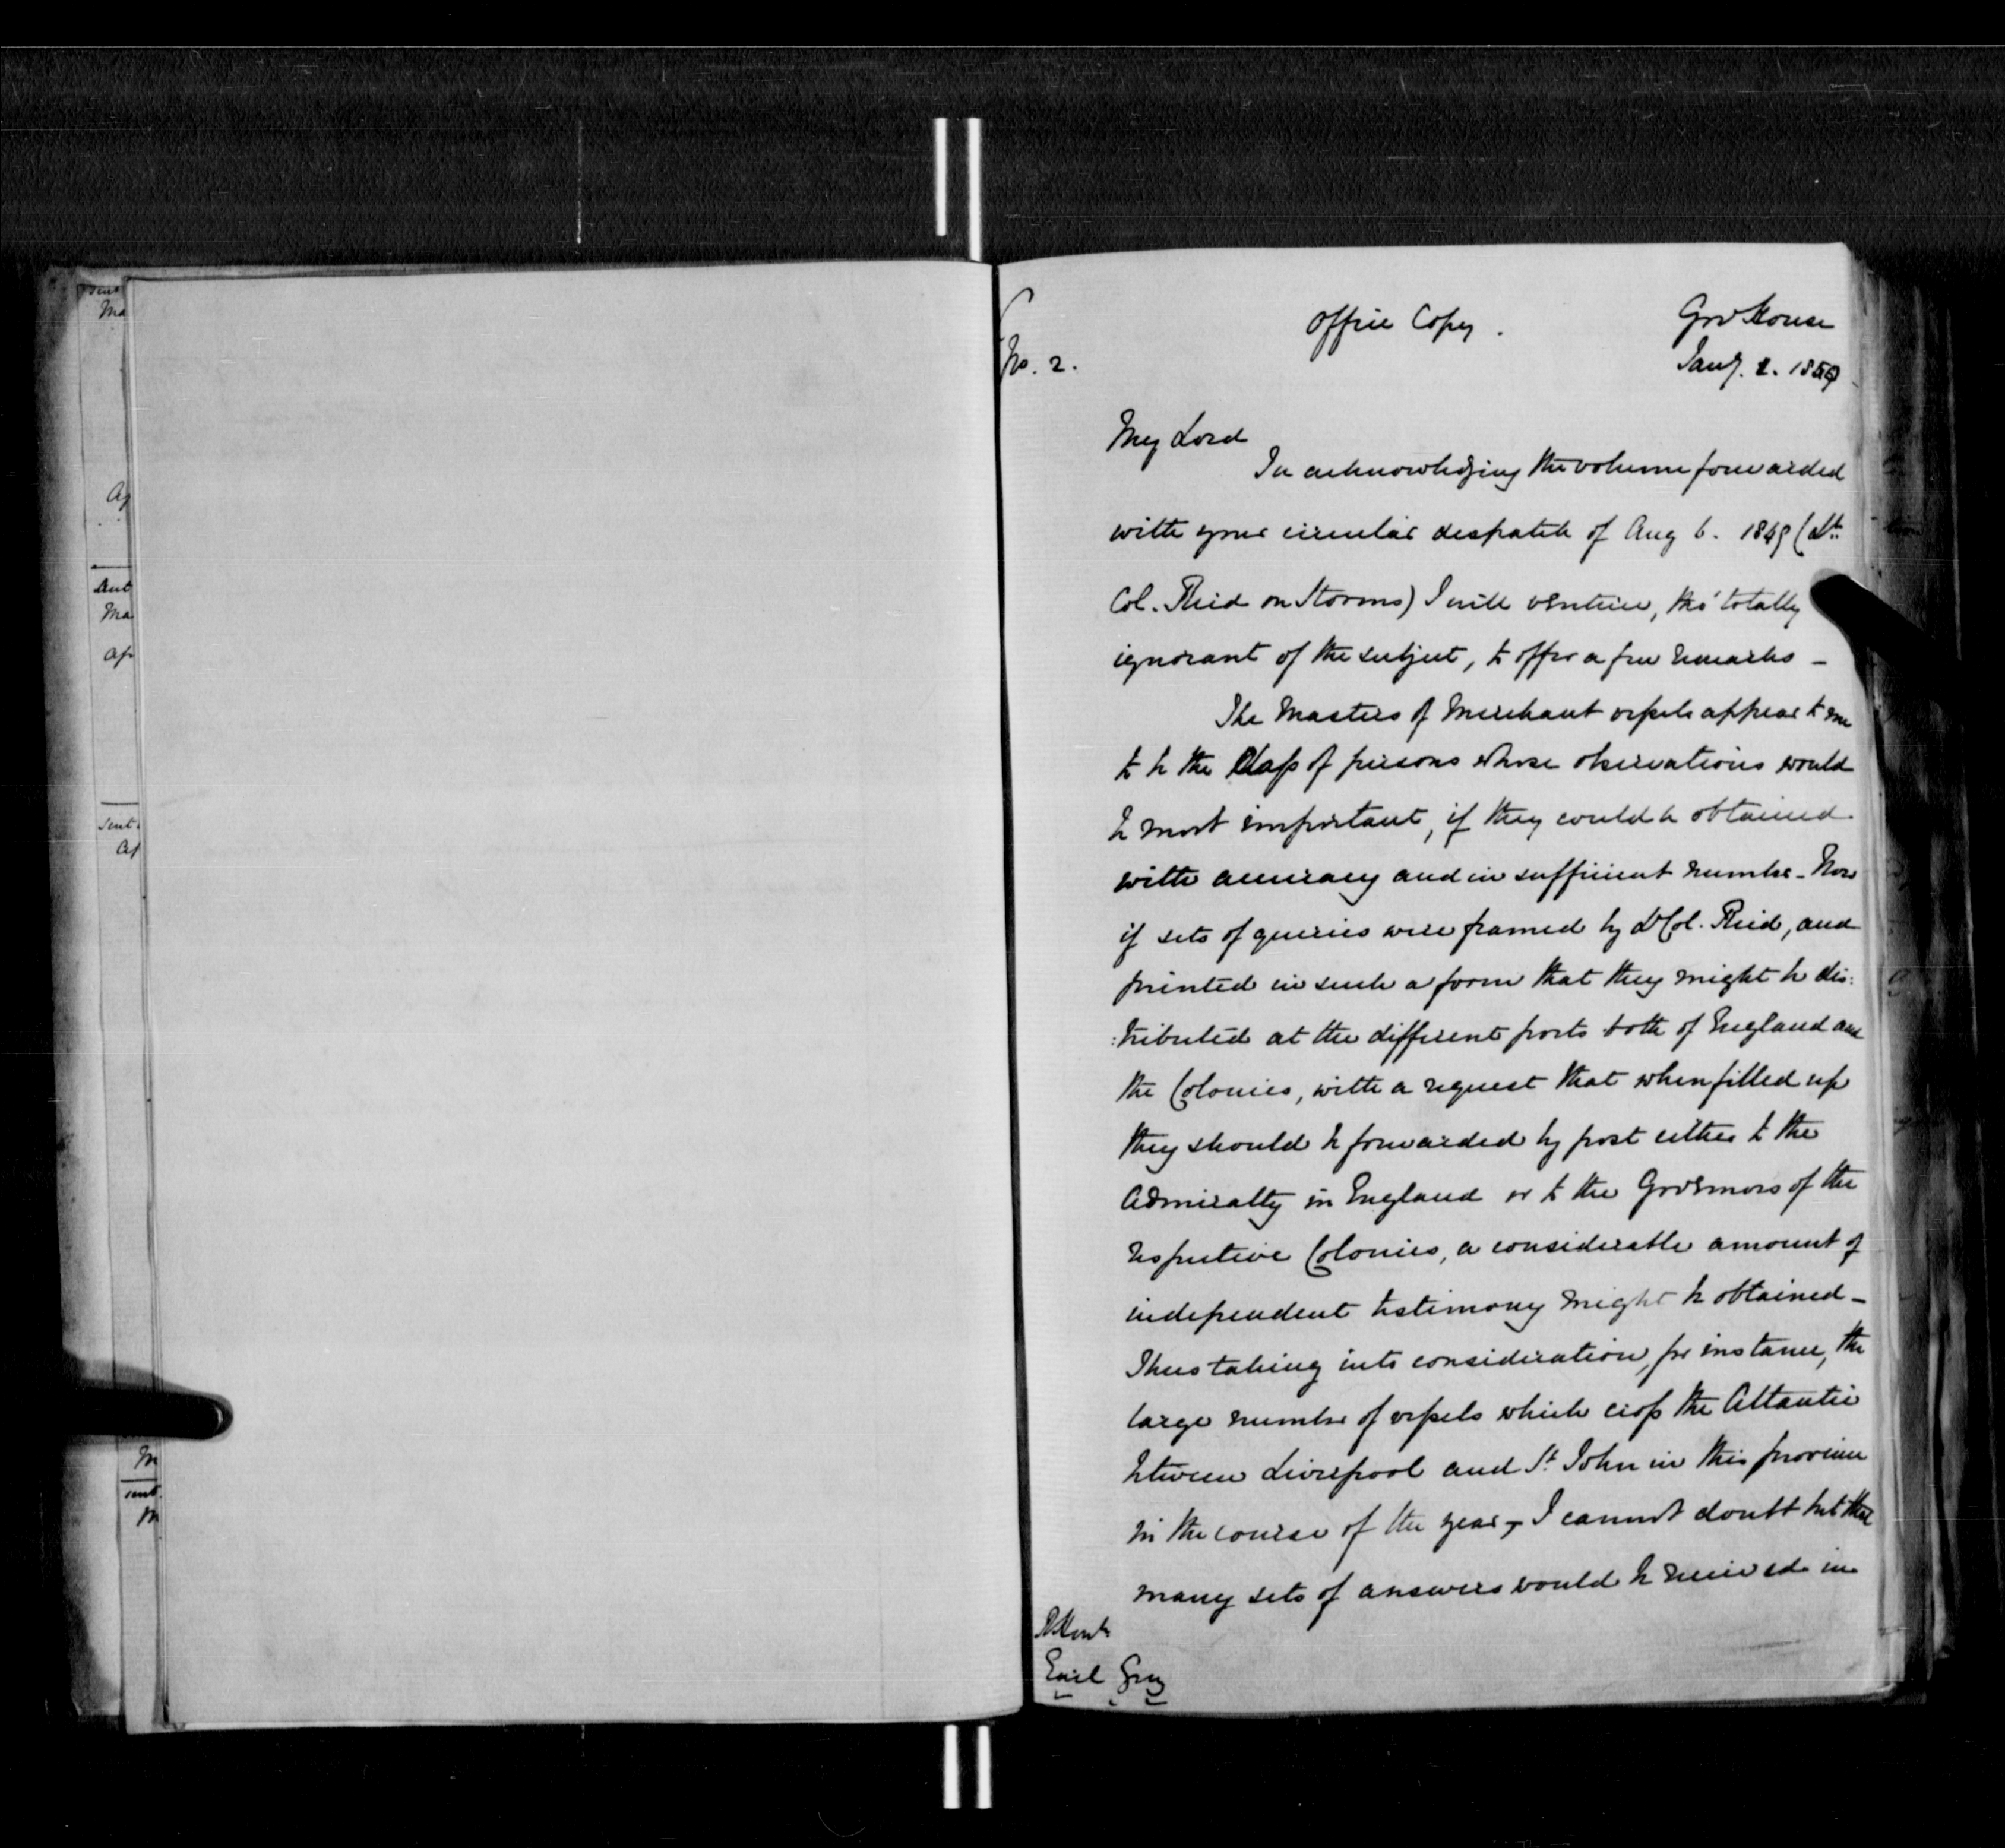 sent
Ma
Ap
sent
Ma
Ap
sent
Ap
M
sent
M
No. 2.
Office Copy.
Gov House
Jany. 2. 1850
My Lord
In acknowledging the volume forwarded
with your circular despatch of Aug 6. 1849 (Lt.
Col. Reid on Storms) I will venture, tho' totally
ignorant of the subject, to offer a few remarks -
The Masters of Merchant vessels appear to me
to be the Class of persons whose observations would
be most important, if they could be obtained
with accuracy and in sufficient number - Now
if sets of queries were framed by Lt Col. Reid, and
printed in such a form that they might be dis:
:tributed at the different ports both of England and
the Colonies, with a request that when filled up
they should be forwarded by post either to the
Admiralty in England or to the Governors of the
respective Colonies, a considerable amount of
independent testimony might be obtained -
Thus taking into consideration, for instance, the
large number of vessels which cross the Atlantic
between Liverpool and St. John in this province
in the course of the year, I cannot doubt but that
many sets of answers would be received in
Earl Grey